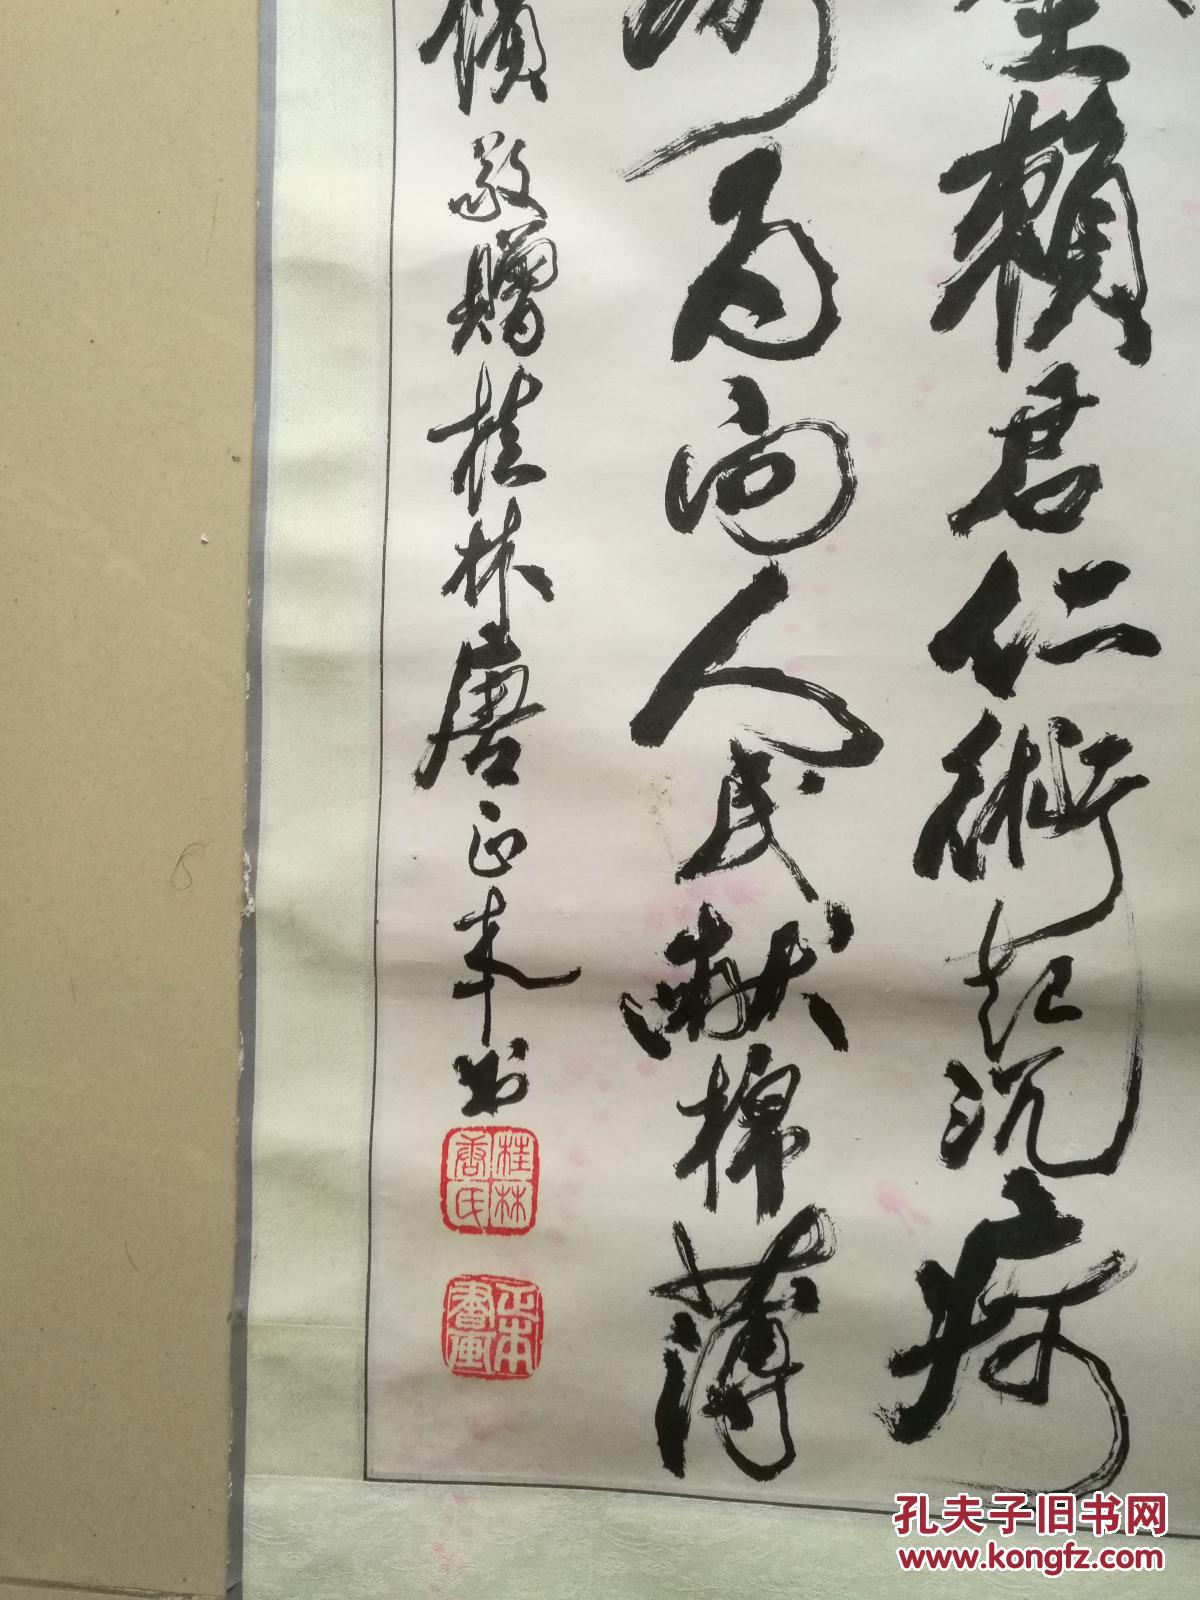 賴君仁術起沉疴
為向人民献棉薄
敬贈桂林唐正本书
桂林唐氏
正本書画
孔夫子旧书网
www.kongfz.com